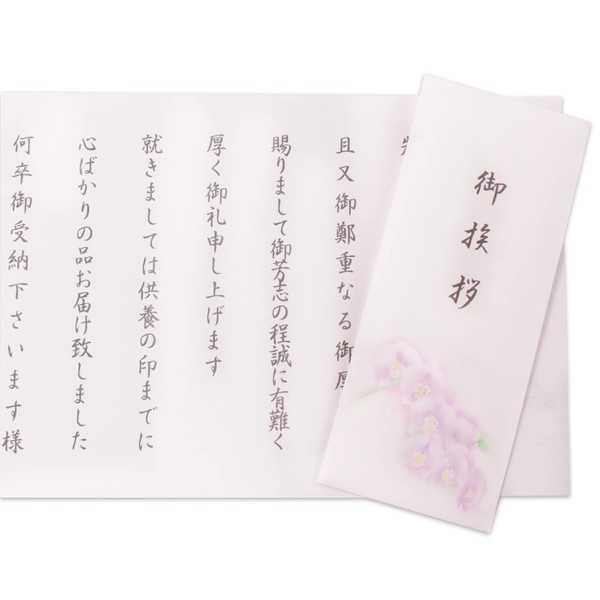 御挨拶
且又御鄭重なる御厚
賜りまして御芳志の程誠に有難く
厚く御礼申し上げます
就きましては供養の印までに
心ばかりの品お届け致しました
何卒御受納下さいます様